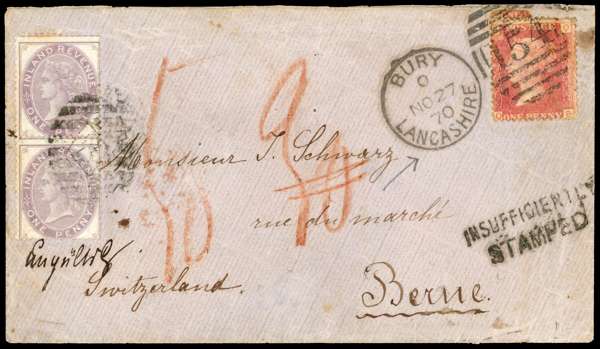 INLAND REVENUE
ONE PENNY
INLAND REVENUE
ONE PENNY
BURY
O
NO 27
70
LANCASHIRE
154
ONE PENNY
Monsieur J. Schwarz
rue du marché
INSUFFICIENTLY
STAMPED
Switzerland.
Berne.